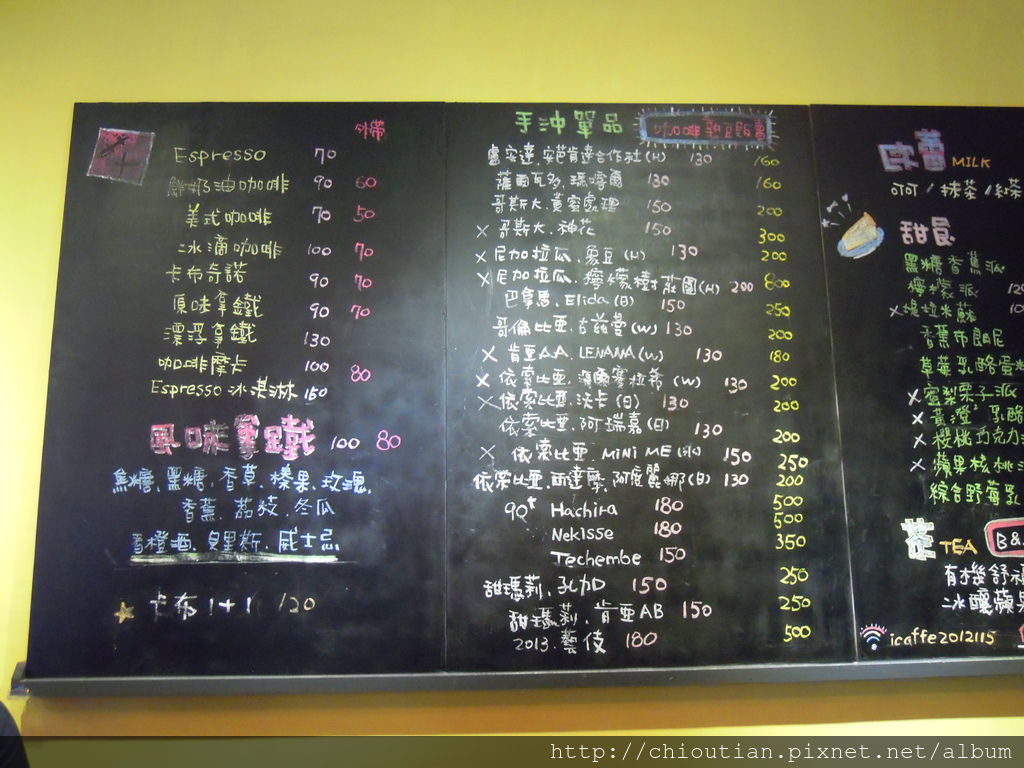 外帶
Espresso 70
鮮奶油咖啡 90 60
美式咖啡 70 50
冰滴咖啡 100 70
卡布奇諾 90 70
原味拿鐵 90 70
漂浮拿鐵 130
咖啡摩卡 100 80
Espresso 冰淇淋 150
風味拿鐵 100 80
焦糖、黑糖、香草、榛果、玫瑰、
香蕉、荔枝、冬瓜
香橙酒、貝里斯、威士忌
卡布 1+1 120
手沖單品 咖啡熟豆販賣
盧安達、安芭肯達合作社(H) 130 160
薩爾瓦多、瑪喀爾 130 160
哥斯大、黃蜜處理 150 200
×哥斯大、神花 150 300
×尼加拉瓜、象豆(H) 130 200
×尼加拉瓜、檸檬樹莊園(H) 200 800
巴拿馬、Elida(日) 150 250
哥倫比亞、吉茲曼(W) 130 200
×肯亞AA、LENANA(W) 130 180
×依索比亞、海爾賽拉希(W) 130 200
×依索比亞、沃卡(日) 130 200
依索比亞、阿瑞嘉(日) 130 200
×依索比亞、MiNi ME(水) 150 250
依索比亞、耶達摩、阿麗娜(日) 130 200
90+ Hachira 180 500
Nekisse 180 500
Techembe 150 350
甜瑪莉、孔加 150 250
甜瑪莉、肯亞AB 150 250
2013、藝伎 180 500
MILK
可可/抹茶/紅茶
甜食
黑糖香蕉派
檸檬派
×堤拉米蘇
香蕉布朗尼
草莓乳酪蛋糕
×蜜梨栗子派
×香橙乳酪
×櫻桃巧克力
×蘋果核桃
綜合野莓乳
茶 TEA B&
有機舒福
冰釀蘋果
icaffe2012115
http://chioutian.pixnet.net/album